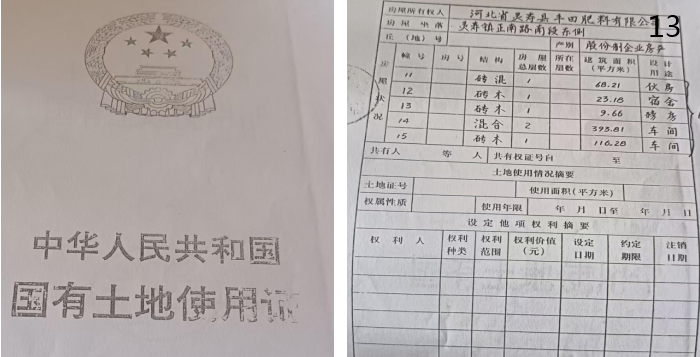 中华人民共和国
国有土地使用证
13
房屋所有权人 河北省灵寿县丰田肥料有限公
房屋坐落 灵寿镇正南路南段东侧
丘(地)号 产别 股份制企业房产
房屋状况 幢号 房号 结构 房屋总层数 所在层数 建筑面积(平方米) 设计用途
11 砖混 1 68.21 伙房
12 砖木 1 23.18 宿舍
13 砖木 1 9.66 磅房
14 混合 2 393.81 车间
15 砖木 1 116.28 车间
共有人 等 人 共有权证号自 至
土地使用情况摘要
土地证号 使用面积(平方米)
权属性质 使用年限 年 月 日至 年 月 日
设定他项权利摘要
权利人 权利种类 权利范围 权利价值(元) 设定日期 约定期限 注销日期